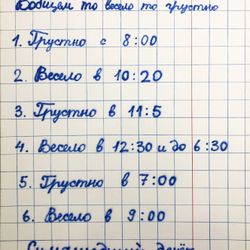 Вобщем то весело то грустно
1. Грустно с 8:00
2. Весело в 10:20
3. Грустно в 11:5
4. Весело в 12:30 и до 6:30
5. Грустно в 7:00
6. Весело в 9:00